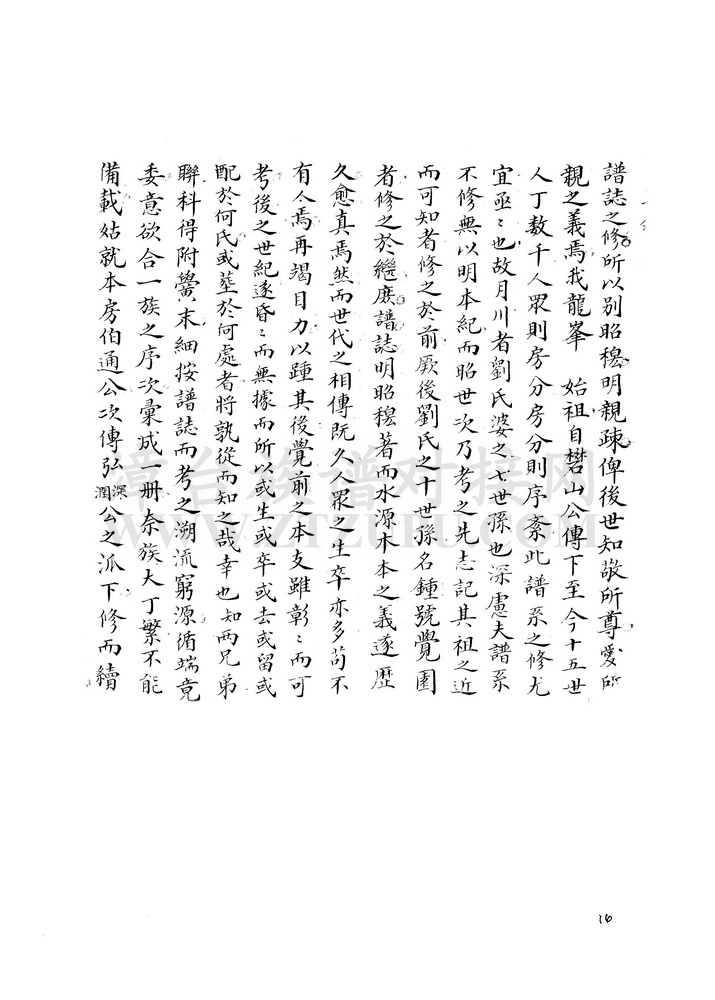 譜誌之修所以别昭穆明親疎俾後世知敬所尊愛所
親之義焉我龍峯 始祖自礬山公傳下至今十五世
人丁数千人眾則房分房分則序紊此譜系之修尤
宜亟〻也故月川者劉氏婆之七世孫也深慮夫譜系
不修無以明本紀而昭世次乃考之先志記其祖之近
而可知者修之於前厥後劉氏之十世孫名鍾號覺園
者修之於繼庶譜誌明昭穆著而水源木本之義遂歷
久愈真焉然而世代之相傳既久人眾之生卒亦多苟不
有人焉再竭目力以踵其後覺前之本支雖彰〻而可
考後之世紀遂昏〻而無據而所以或生或卒或去或留或
配於何氏或塟於何處者將孰從而知之哉幸也知兩兄弟
聯科得附黌末細按譜誌而考之溯流窮源循端竟
委意欲合一族之序次彙成一册奈族大丁繁不能
備載姑就本房伯通公次傳弘深潤公之派下修而續
樟台族谱对接网
WWW.ZTZUPU.COM
16